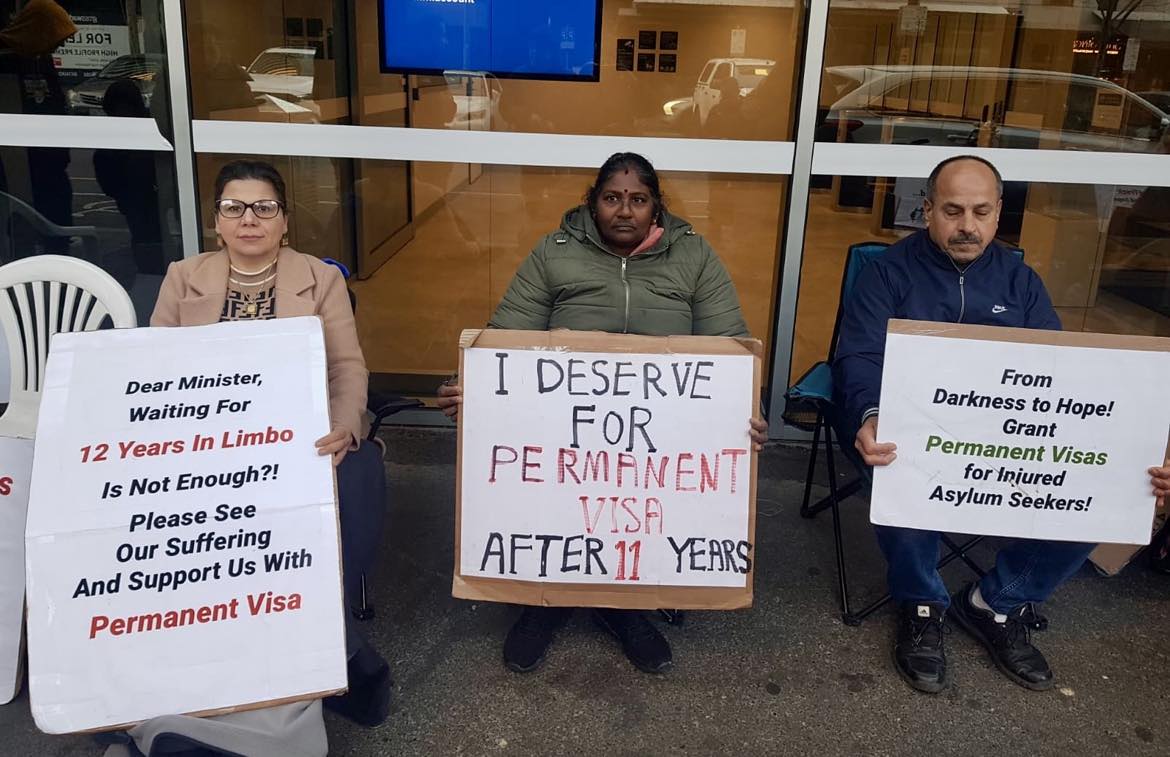 FOR LEA
HIGH PROFILE PREM
Dear Minister,
Waiting For
12 Years In Limbo
Is Not Enough?!
Please See
Our Suffering
And Support Us With
Permanent Visa
I DESERVE
FOR
PERMANENT
VISA
AFTER 11 YEARS
From
Darkness to Hope!
Grant
Permanent Visas
for Injured
Asylum Seekers!
s